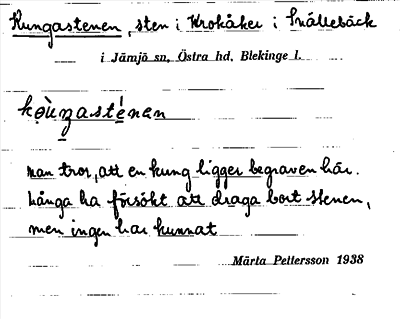 Kungastenen, sten i Krokåker i Snällebäck
i Jämjö sn, Östra hd, Blekinge l.
man tror, att en kung ligger begraven här.
Många ha försökt att draga bort stenen,
men ingen har kunnat
Märta Pettersson 1938